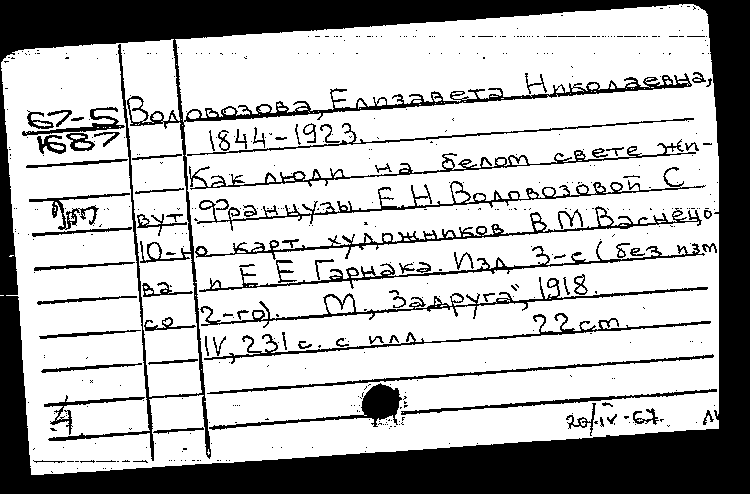 67-5 Водовозова, Елизавета Николаевна,
1687 1844-1923.
Как люди на белом свете жи-
вут. Французы Е.Н. Водовозовой С
10-ю карт. художников В.М. Васнецо-
ва и Е.Е. Гарнака. Изд. 3-е (без изм
со 2-го). М., "Задруга", 1918.
IV, 231 с. с илл. 22 cm.
4
20/IV-67.